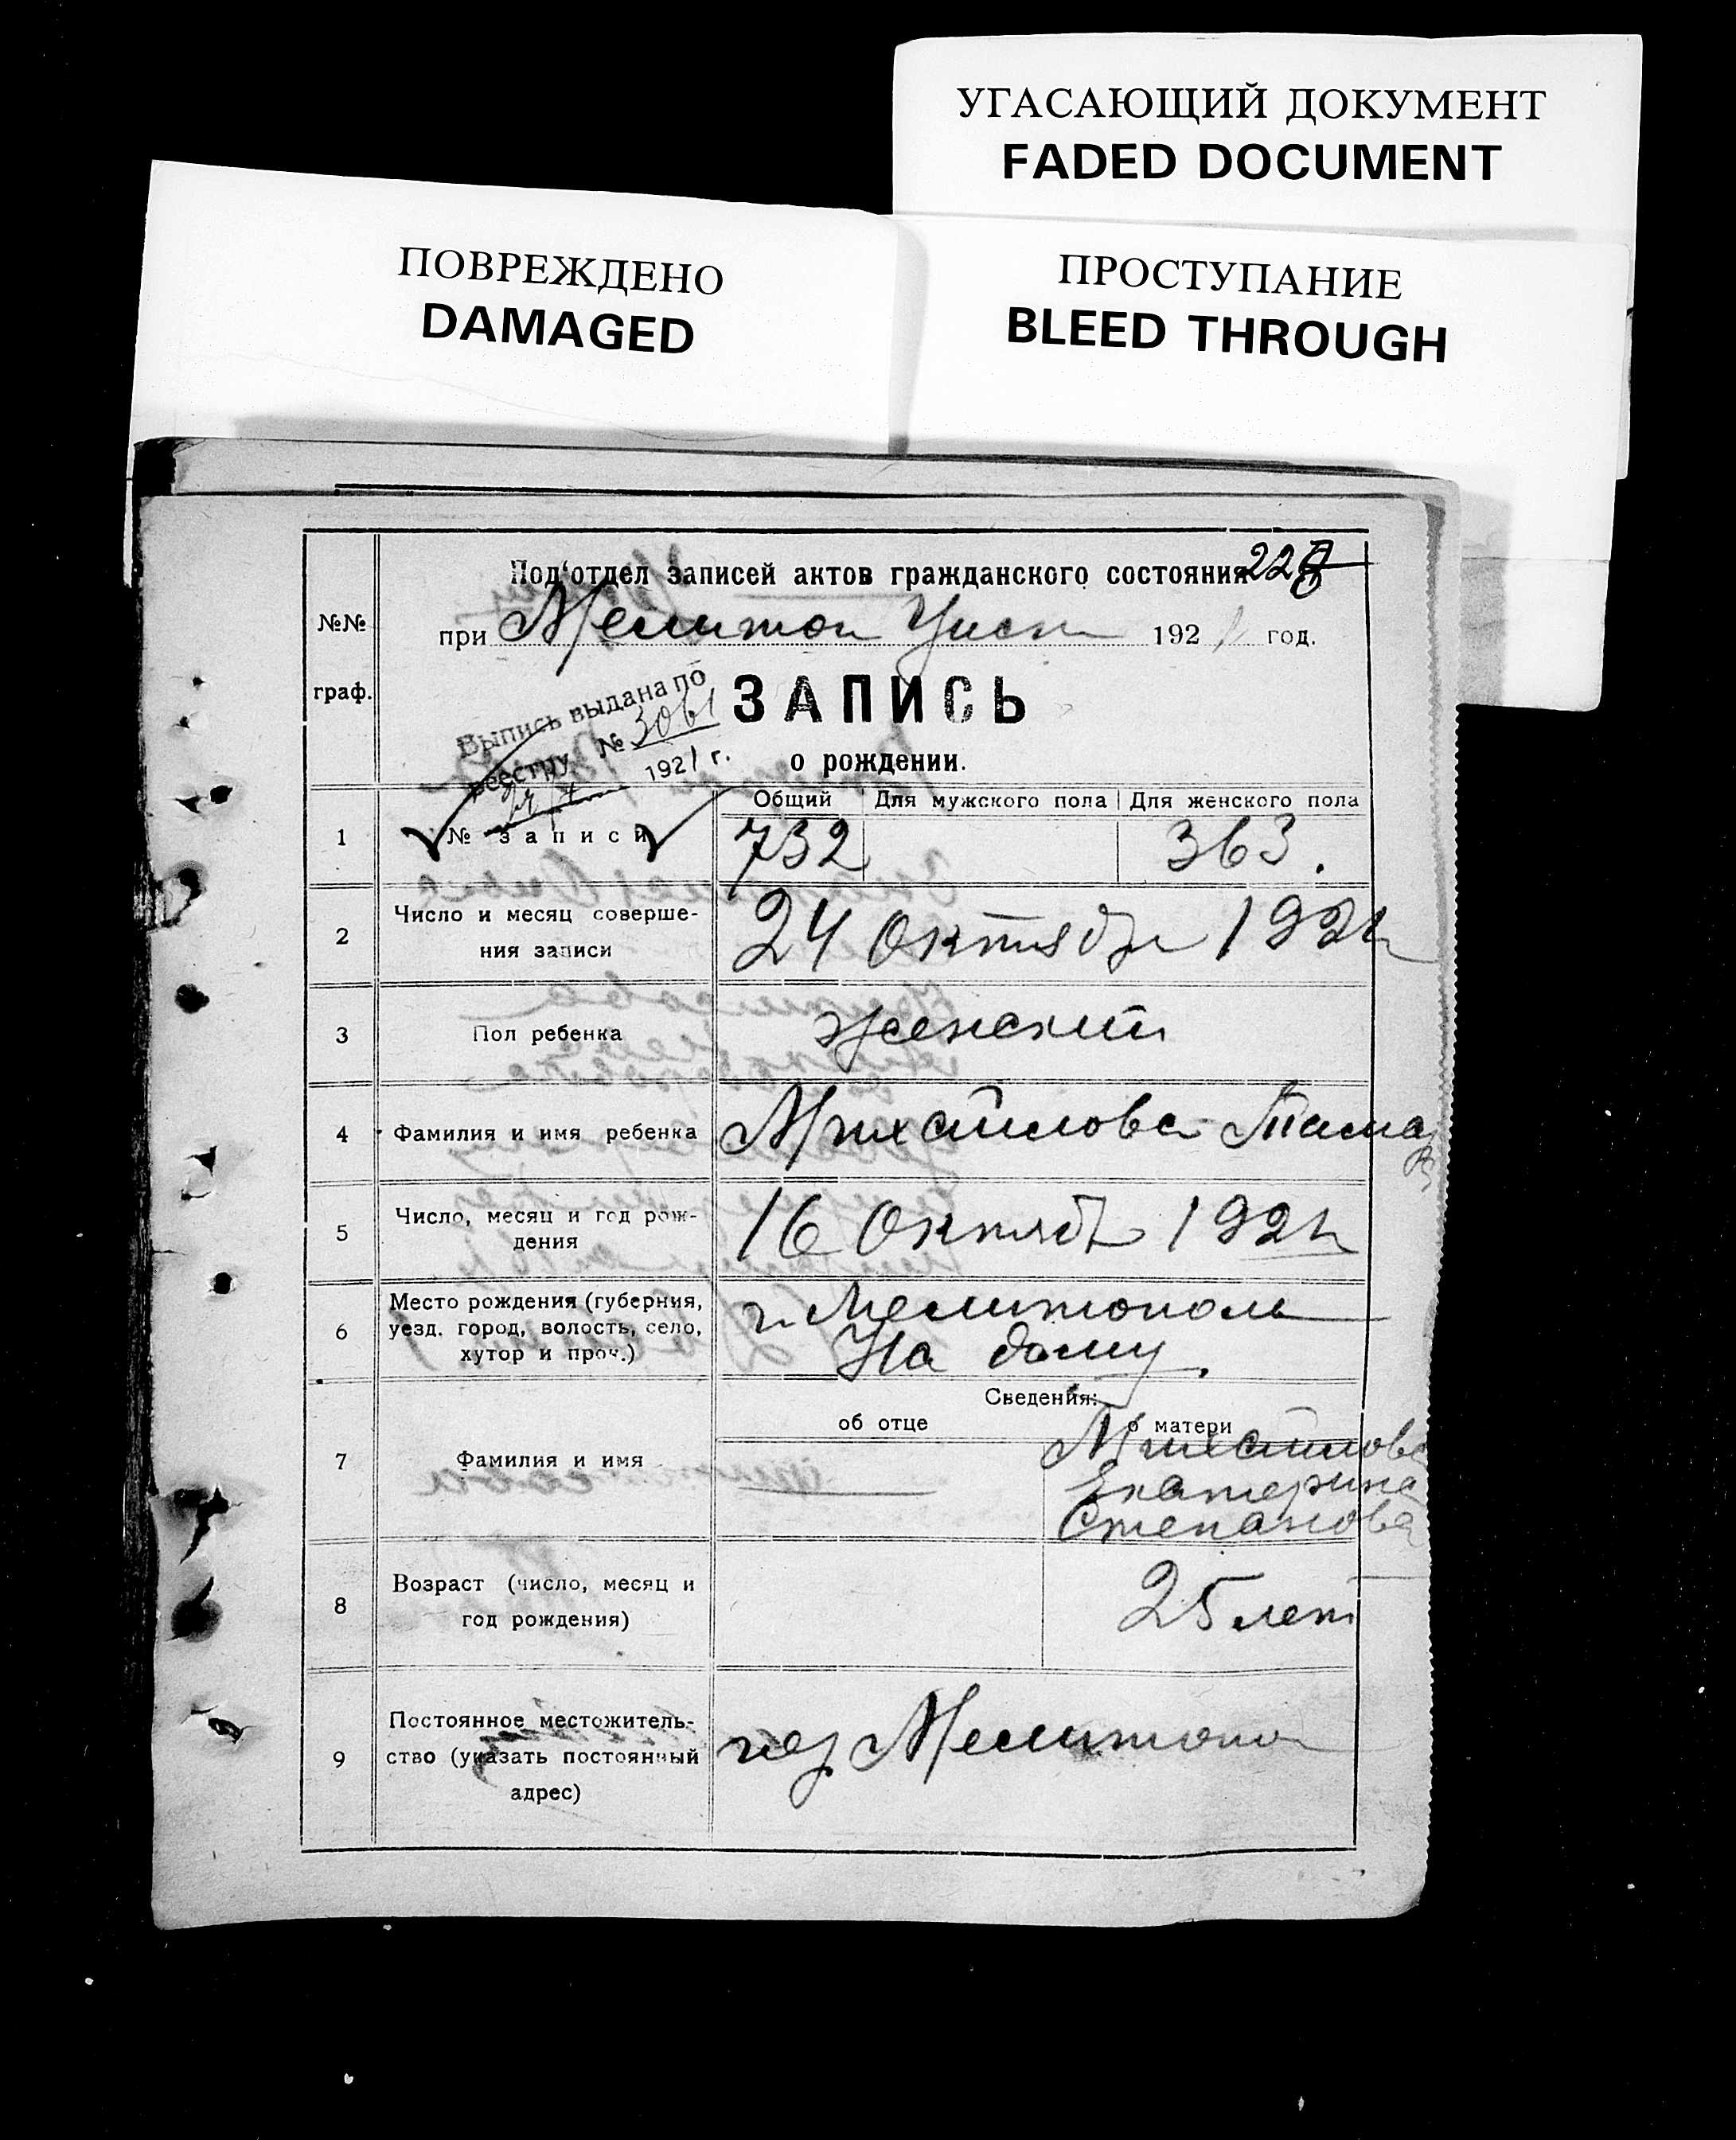 УГАСАЮЩИЙ ДОКУМЕНТ
FADED DOCUMENT
ПОВРЕЖДЕНО
DAMAGED
ПРОСТУПАНИЕ
BLEED THROUGH
Под'отдел записей актов гражданского состояния 22
№№
граф.
при Мелитоп Уиск 1921 год.
Выпись выдана по
реестру № 3061
1921 г.
ЗАПИСЬ
о рождении.
Общий Для мужского пола Для женского пола
1 № записи 732 363.
2 Число и месяц соверше-
ния записи
24 Октября 1921
3 Пол ребенка женский
4 Фамилия и имя ребенка Михайлова Тамара
5 Число, месяц и год рож-
дения
16 Октяб 1921
6 Место рождения (губерния,
уезд, город, волость, село,
хутор и проч.)
г. Мелитополь
На дому.
Сведения:
об отце о матери
7 Фамилия и имя
Михайлова
Екатерина
Степанова
8 Возраст (число, месяц и
год рождения)
25 лет
9 Постоянное местожитель-
ство (указать постоянный
адрес)
гор Мелитопол